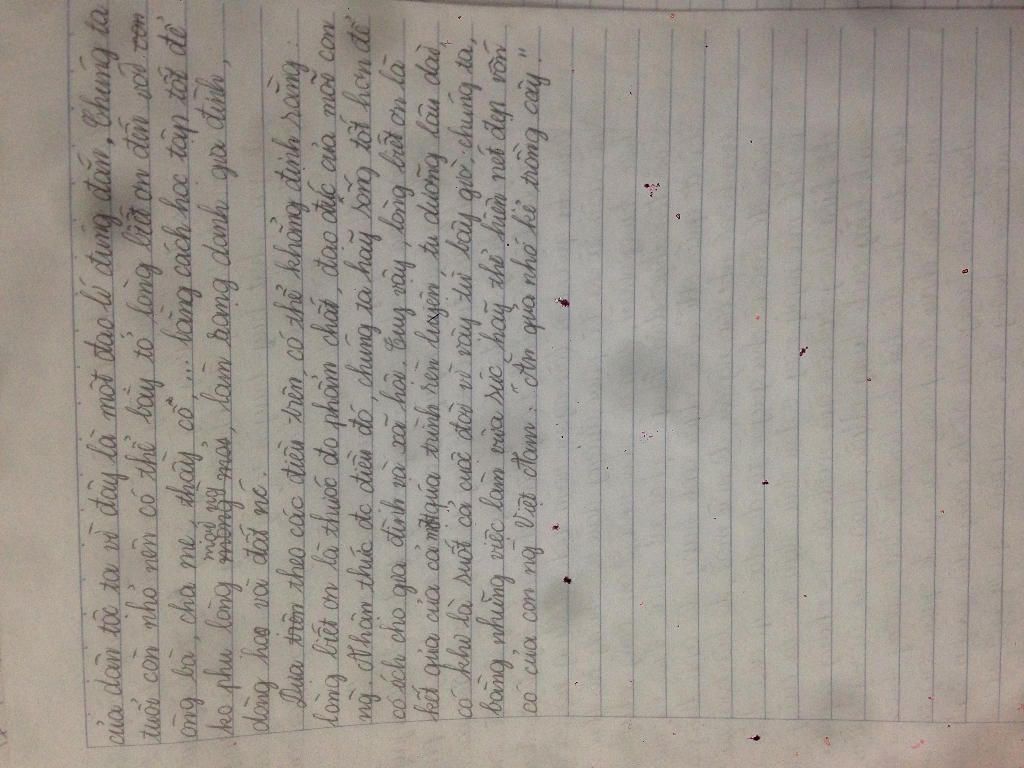 của dân tộc ta vì đây là một đạo lí đúng đắn. Chúng ta
tuổi còn nhỏ nên có thể bày tỏ lòng biết ơn đến với
ông bà, cha mẹ, thầy cô,... bằng cách học tập tốt để
ko phụ lòng mọi ng, làm rạng danh gia đình,
dòng họ và đất nc.
Dựa theo các điều trên, có thể khẳng định rằng:
lòng biết ơn là thước đo phẩm chất, đạo đức của mỗi con
ng. Nhận thức đc điều đó, chúng ta hãy sống tốt hơn để
có ích cho gia đình và xã hội. Tuy vậy, lòng biết ơn là
kết quả của cả quá trình rèn luyện, tu dưỡng lâu dài
có khi là suốt cả cuộc đời vì vậy từ bây giờ, chúng ta,
bằng những việc làm vừa sức hãy thể hiện nét đẹp vốn
có của con ng Việt Nam: "Ăn quả nhớ kẻ trồng cây".